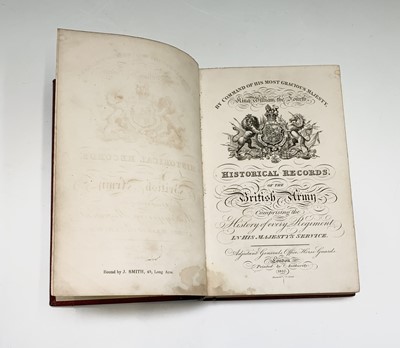 Bound by J. SMITH, 49, Long Acre
BY COMMAND OF HIS MOST GRACIOUS MAJESTY,
King William the Fourth
HISTORICAL RECORDS,
OF THE
British Army
Comprising the
History of every Regiment
IN HIS MAJESTY'S SERVICE.
Adjutant Generals Office, Horse Guards
London
Printed by